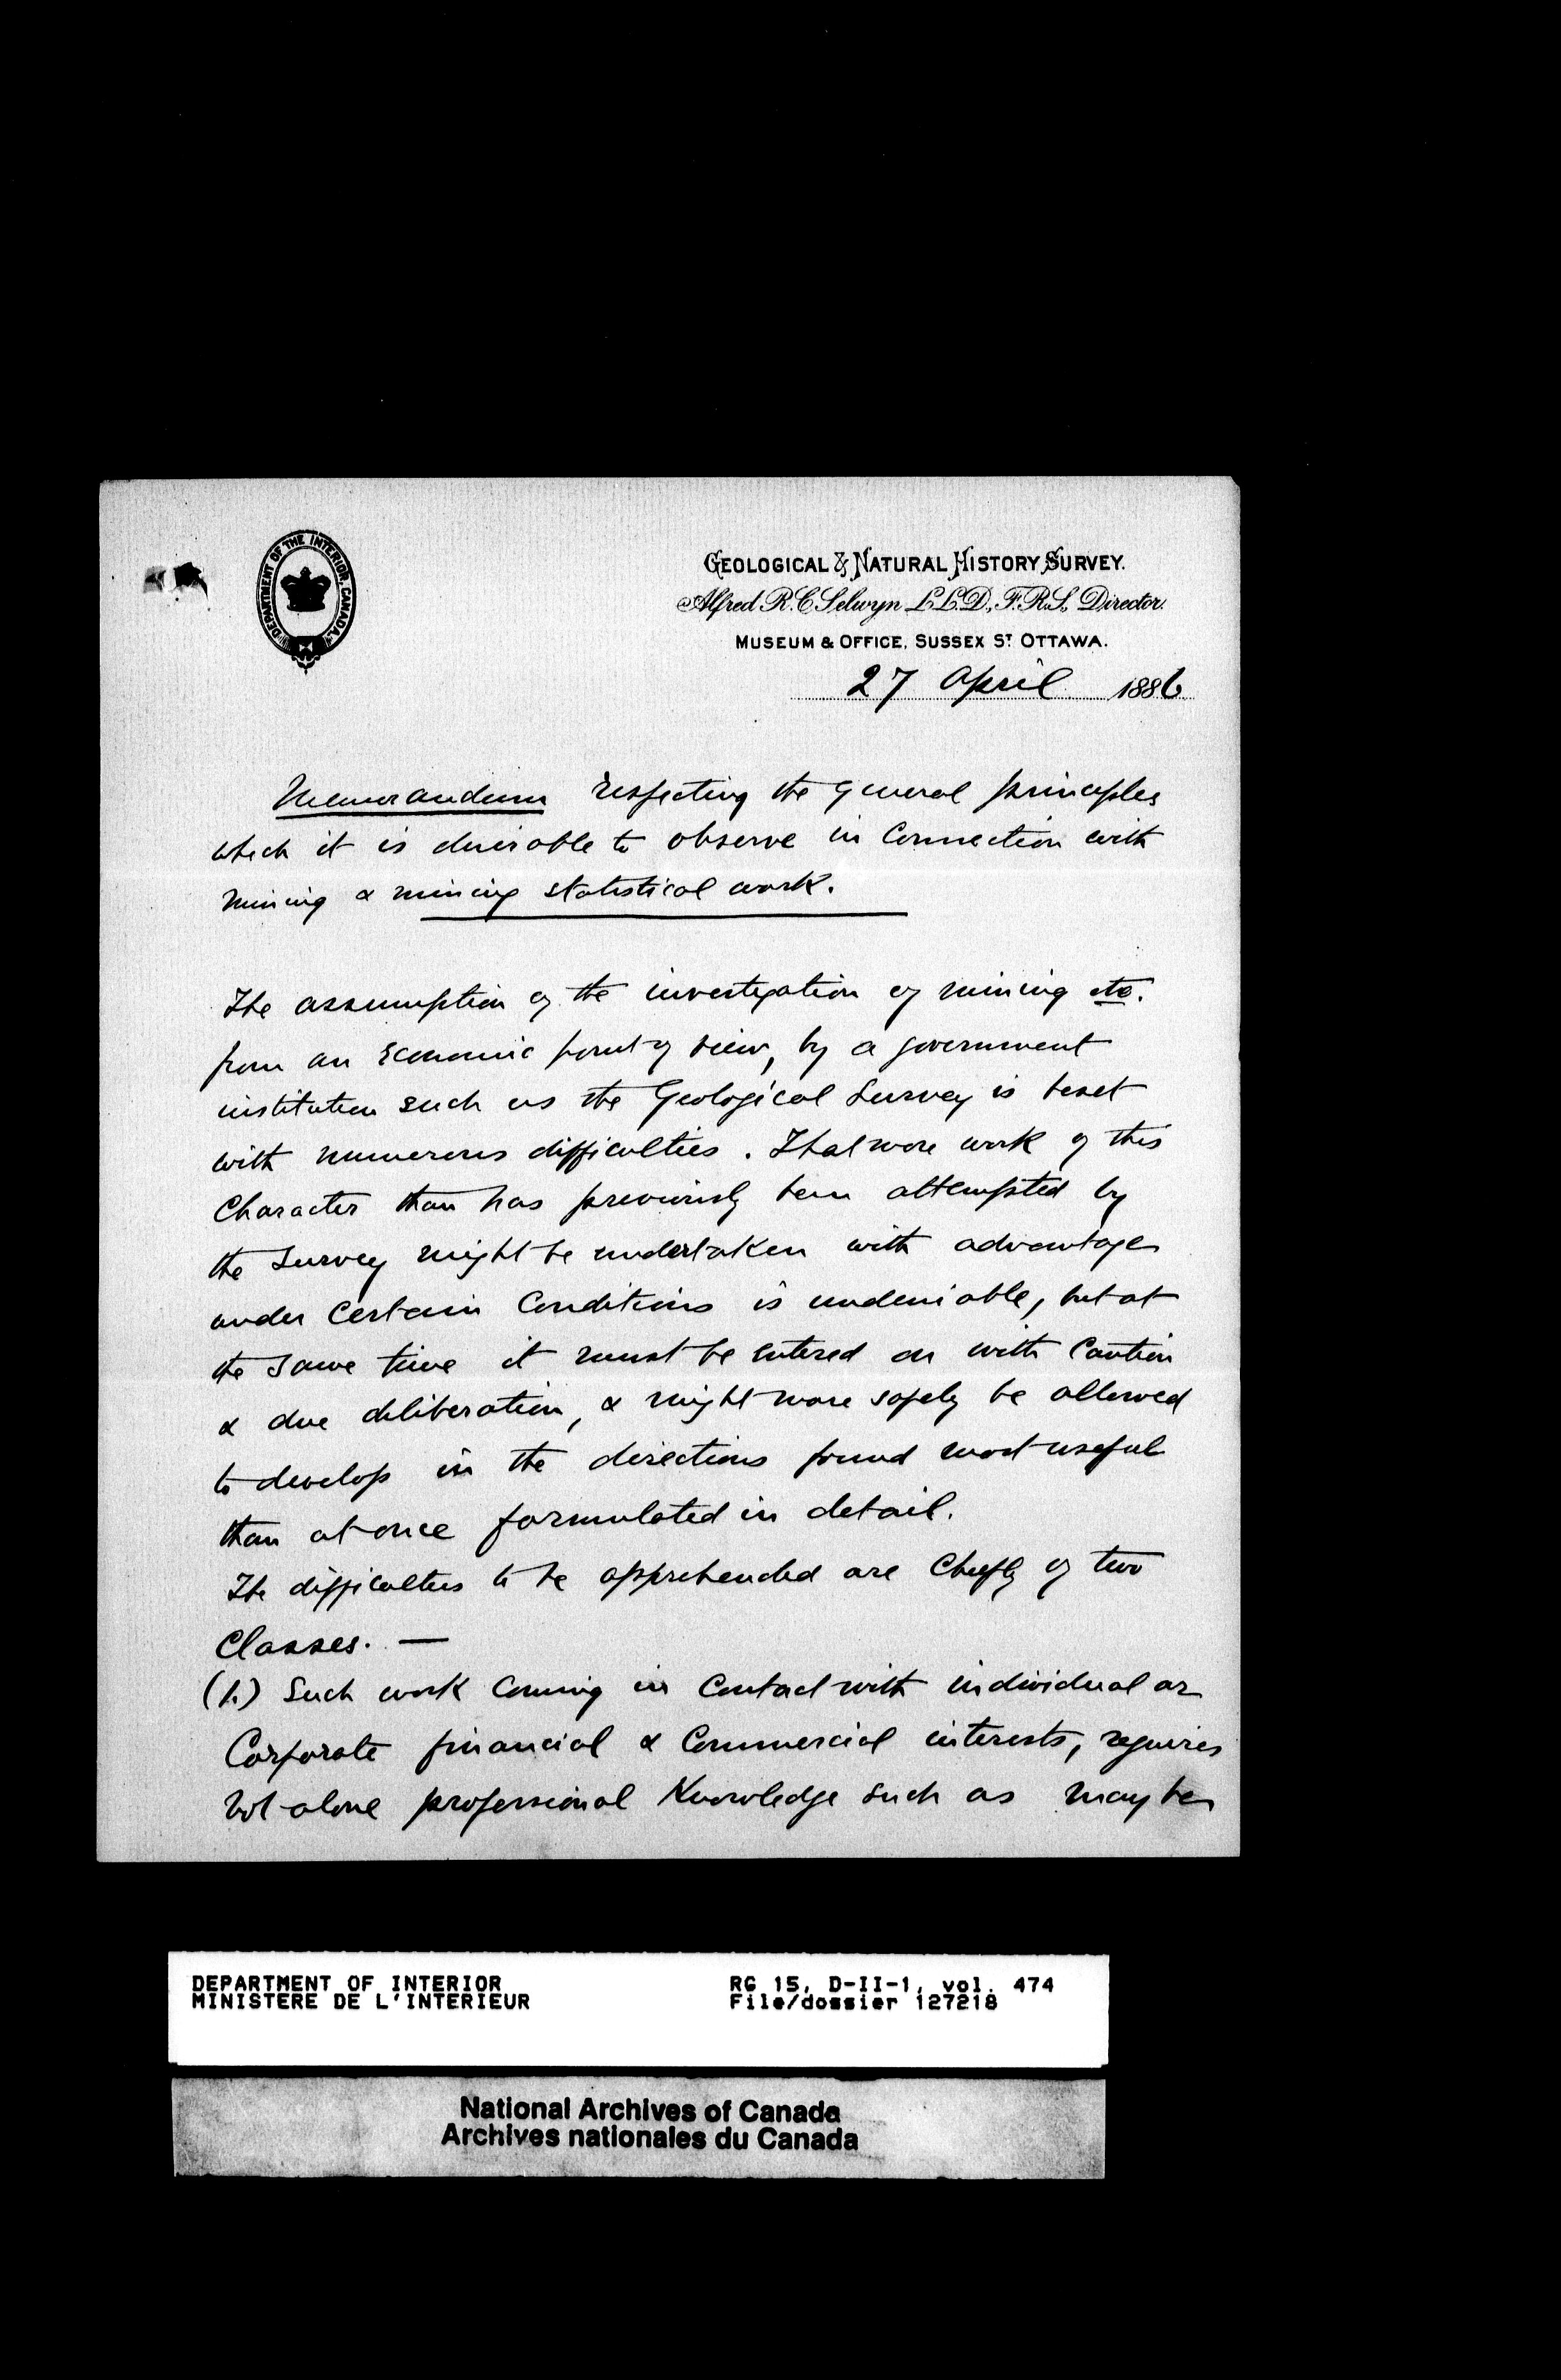 DEPARTMENT OF THE INTERIOR, CANADA.
GEOLOGICAL & NATURAL HISTORY SURVEY.
Alfred R. C. Selwyn LL.D., F.R.S., Director.
MUSEUM & OFFICE, SUSSEX ST. OTTAWA.
27 April 1886
Memorandum respecting the general principles
which it is desirable to observe in connection with
mining & mining statistical work.
The assumption of the investigation of mining etc.
from an economic point of view, by a government
institution such as the Geological Survey is beset
with numerous difficulties. That more work of this
character than has previously been attempted by
the Survey might be undertaken with advantage
under certain conditions is undeniable, but at
the same time it must be entered on with caution
& due deliberation, & might more safely be allowed
to develop in the directions found most useful
than at once formulated in detail.
The difficulties to be apprehended are chiefly of two
classes. —
(1.) Such work coming in contact with individual or
Corporate financial & commercial interests, requires
not alone professional knowledge such as may be
DEPARTMENT OF INTERIOR
MINISTERE DE L'INTERIEUR
RG 15, D-II-1, vol. 474
File/dossier 127218
National Archives of Canada
Archives nationales du Canada